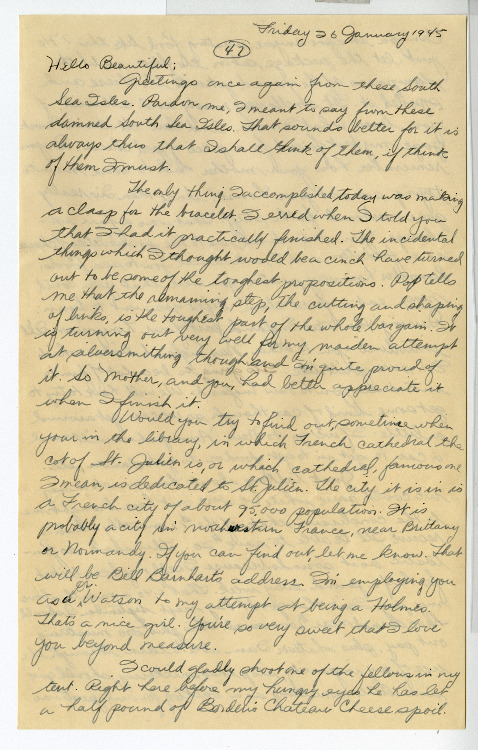 Friday 26 January 1945
47
Hello Beautiful;
Greetings once again from these South
Sea Isles. Pardon me, I meant to say from these
damned South Sea Isles. That sounds better for it is
always thus that I shall think of them, if think
of them I must.
The only thing I accomplished today was making
a clasp for the bracelet. I erred when I told you
that I had it practically finished. The incidental
things which I thought would be a cinch have turned
out to be some of the toughest propositions. Pop tells
me that the remaining step, the cutting and shaping
of links, is the toughest part of the whole bargain. It
is turning out very well for my maiden attempt
at silversmithing though and I'm quite proud of
it. So Mother, and you, had better appreciate it
when I finish it.
Would you try to find out, sometime when
your in the library, in which French cathedral the
of St. Julien is, or which cathedral, famous one
I mean, is dedicated to St. Julien. The city it is in is
a French city of about 95,000 population. It is
probably a city in northwestern France, near Brittany
or Normandy. If you can find out let me know. That
will be Bill Barnhart's address. I'm employing you
as a Dr. Watson to my attempt at being a Holmes.
Thats a nice girl. You're so very sweet that I love
you beyond measure.
I could gladly shoot one of the fellows in my
tent. Right here before my hungry eyes he has let
a half pound of Borden's Chateau Cheese spoil.